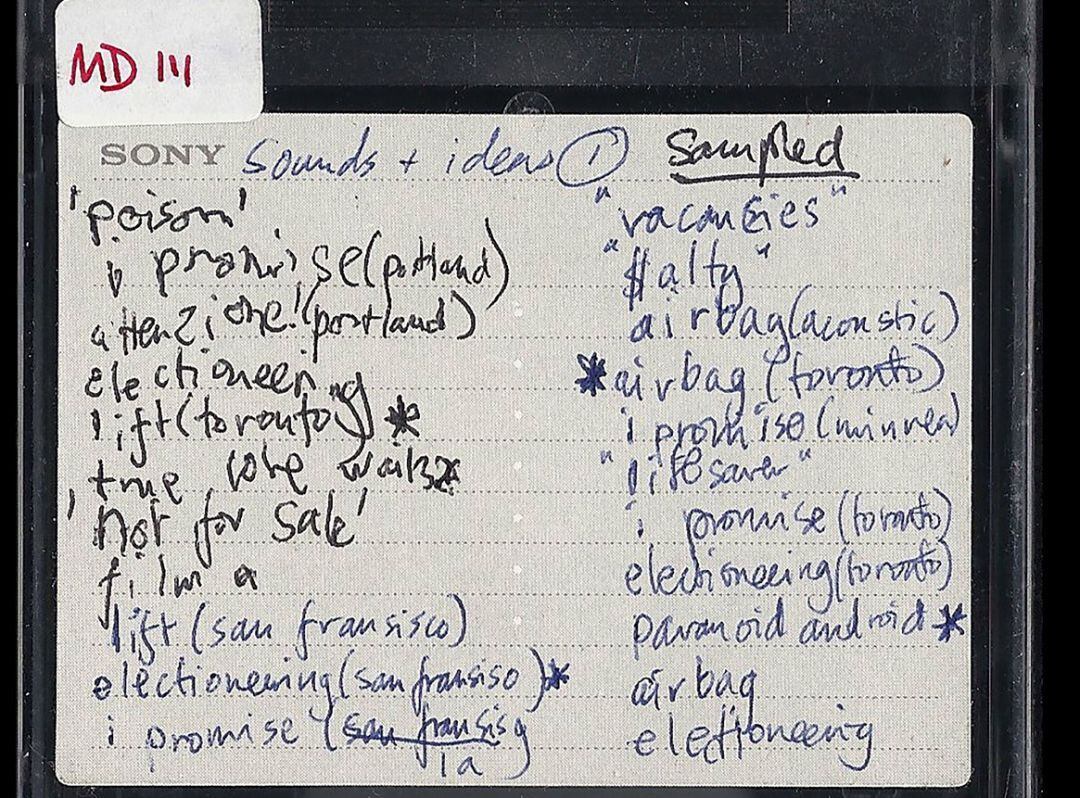 MD 111
SONY sounds + ideas 1 Sampled
'poison'
i promise (portland)
attenzione! (portland)
electioneering
lift (toronto) *
true love waits *
'not for sale'
film a
lift (san fransisco)
electioneering (san fransiso) *
i promise (san fransis
la
"vacansies"
airbag (acoustic)
* airbag (toronto)
i promise (minnea)
"lifesaver"
i promise (toronto)
electioneering (toronto)
paranoid android *
airbag
electioneering